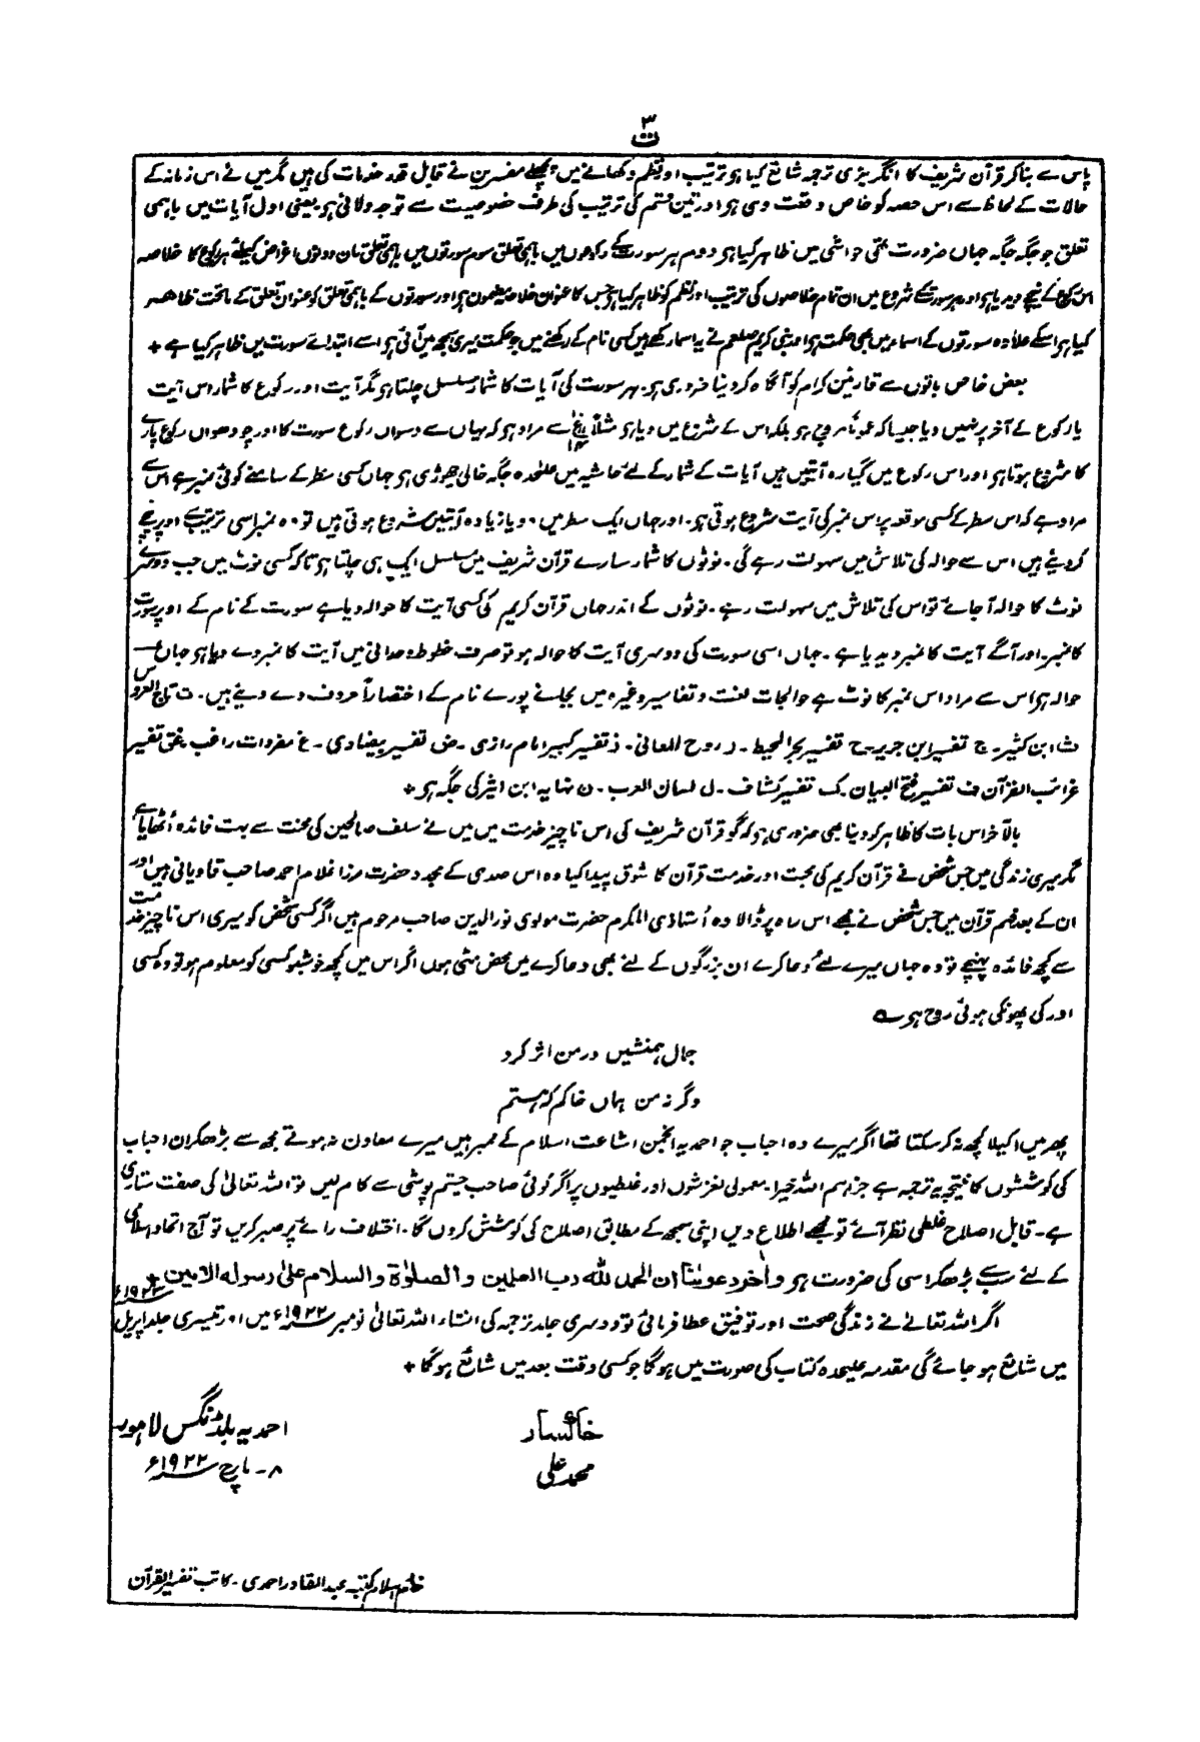 ت ۳
پاس سے بنا کر قرآن شریف کا انگریزی ترجمہ شائع کیا ہو ترتیب اور نظم دکھانے میں پچھلے مفسرین نے قابل قدر خدمات کی ہیں مگر میں نے اس زمانہ کے
حالات کے لحاظ سے اس حصہ کو خاص وقعت دی ہو اور تین قسم کی ترتیب کی طرف خصوصیت سے توجہ دلائی ہو یعنی اول آیات میں باہمی
تعلق جو جگہ جگہ جہاں ضرورت تھی حواشی میں ظاہر کیا ہو دوم ہر سورت کے رکوعوں میں باہمی تعلق سوم سورتوں میں باہمی تعلق ان دونوں اغراض کیلئے ہر رکوع کا خلاصہ
اس رکوع کے نیچے دیدیا ہو اور ہر سورت کے شروع میں ان تمام خلاصوں کی ترتیب اور نظم کو ظاہر کیا ہو جس کا عنوان خلاصہ مضمون ہو اور سورتوں کے باہمی تعلق کو عنوان تعلق کے ماتحت ظاہر
کیا ہو اسکے علاوہ سورتوں کے اسماء میں بھی حکمت ہو اور نبی کریم صلعم نے یہ اسماء رکھے ہیں کسی نام کے رکھنے میں جو حکمت میری سمجھ میں آئی ہو اسے ابتدائے سورت میں ظاہر کیا ہے +
بعض خاص باتوں سے قارئین کرام کو آگاہ کر دینا ضروری ہو۔ ہر سورت کی آیات کا شمار مسلسل چلتا ہو مگر آیت اور رکوع کا شمار اس آیت
یا رکوع کے آخر پر نہیں دیا جیسا کہ عموماً مروج ہو بلکہ اس کے شروع میں دیا ہو مثلاً سے مراد ہو کہ یہاں سے دسواں رکوع سورت کا اور چودھواں رکوع پارے
کا شروع ہوتا ہو اور اس رکوع میں گیارہ آیتیں ہیں آیات کے شمار کے لئے حاشیہ میں علیحدہ جگہ خالی چھوڑی ہو جہاں کسی سطر کے سامنے کوئی نمبر ہے اس سے
مراد ہے کہ اس سطر کے کسی موقعہ پر اس نمبر کی آیت شروع ہوتی ہو۔ اور جہاں ایک سطر میں دو یا زیادہ آیتیں شروع ہوتی ہیں تو وہ نمبر اسی ترتیب سے اوپر نیچے
کر دیئے ہیں اس سے حوالہ کی تلاش میں سہولت رہے گی۔ نوٹوں کا شمار سارے قرآن شریف میں مسلسل ایک ہی چلتا ہو تاکہ کسی نوٹ میں جب دوسرے
نوٹ کا حوالہ آ جائے تو اس کی تلاش میں سہولت رہے۔ نوٹوں کے اندر جہاں قرآن کریم کی کسی آیت کا حوالہ دیا ہے سورت کے نام کے اوپر سورت
کا نمبر۔ اور آگے آیت کا نمبر دیدیا ہے۔ جہاں اسی سورت کی دوسری آیت کا حوالہ ہو تو صرف خطوط وحدانی میں آیت کا نمبر دے دیا ہو جہاں
حوالہ ہو اس سے مراد اس نمبر کا نوٹ ہے حوالجات لغت و تفاسیر وغیرہ میں بجائے پورے نام کے اختصاراً حروف دے دیئے ہیں۔ ت تاج العروس
ث ابن کثیر۔ ج تفسیر ابن جریر۔ ح تفسیر بحر المحیط۔ ر روح المعانی۔ ز تفسیر کبیر امام رازی۔ ض تفسیر بیضاوی۔ غ مفردات راغب۔ غق تفسیر
غرائب القرآن ف تفسیر فتح البیان۔ ک تفسیر کشاف۔ ل لسان العرب۔ ن نہایہ ابن اثیر کی جگہ ہو +
بالآخر اس بات کا ظاہر کر دینا بھی ضروری ہو کہ گو قرآن شریف کی اس ناچیز خدمت میں میں نے سلف صالحین کی محنت سے بہت فائدہ اُٹھایا ہے
مگر میری زندگی میں جس شخص نے قرآن کریم کی محبت اور خدمت قرآن کا شوق پیدا کیا وہ اس صدی کے مجدد حضرت مرزا غلام احمد صاحب قادیانی ہیں اور
ان کے بعد فہم قرآن میں جس شخص نے مجھے اس راہ پر ڈالا وہ اُستاذی المکرم حضرت مولوی نور الدین صاحب مرحوم ہیں اگر کسی شخص کو میری اس ناچیز خدمت
سے کچھ فائدہ پہنچے تو وہ جہاں میرے لئے دُعا کرے ان بزرگوں کے لئے بھی دعا کرے میں محض مٹی ہوں اگر اس میں کچھ خوشبو کسی کو معلوم ہو تو وہ کسی
اور کی پھونکی ہوئی روح ہے
جمال ہمنشیں در من اثر کرد
وگر نہ من ہماں خاکم کہ ہستم
پھر میں اکیلا کچھ نہ کر سکتا تھا اگر میرے وہ احباب جو احمدیہ انجمن اشاعت اسلام کے ممبر ہیں میرے معاون نہ ہوتے مجھ سے بڑھکر ان احباب
کی کوششوں کا نتیجہ یہ ترجمہ ہے جزاہم اللہ خیرا۔ معمولی لغزشوں اور غلطیوں پر اگر کوئی صاحب چشم پوشی سے کام لیں تو اللہ تعالیٰ کی صفت ستاری
ہے۔ قابل اصلاح غلطی نظر آئے تو مجھے اطلاع دیں اپنی سمجھ کے مطابق اصلاح کی کوشش کروں گا۔ اختلاف رائے پر صبر کریں تو آج اتحاد اسلامی
کے لئے سب سے بڑھکر اسی کی ضرورت ہو واٰخر دعوٰنا ان الحمد للہ رب العلمین والصلوٰۃ والسلام علیٰ رسولہ الامین +
اگر اللہ تعالےٰ نے زندگی صحت اور توفیق عطا فرمائی تو دوسری جلد ترجمہ کی انشاء اللہ تعالیٰ نومبر ۱۹۲۲ء میں اور تیسری جلد اپریل ۱۹۲۳ء
میں شائع ہو جائے گی مقدمہ علیحدہ کتاب کی صورت میں ہوگا جو کسی وقت بعد میں شائع ہوگا +
خاکسار
محمد علی
احمدیہ بلڈنگس لاہور
۸۔ مارچ ۱۹۲۲ء
خادم اسلام کتبہ عبد القادر احمدی۔ کاتب تفسیر القرآن